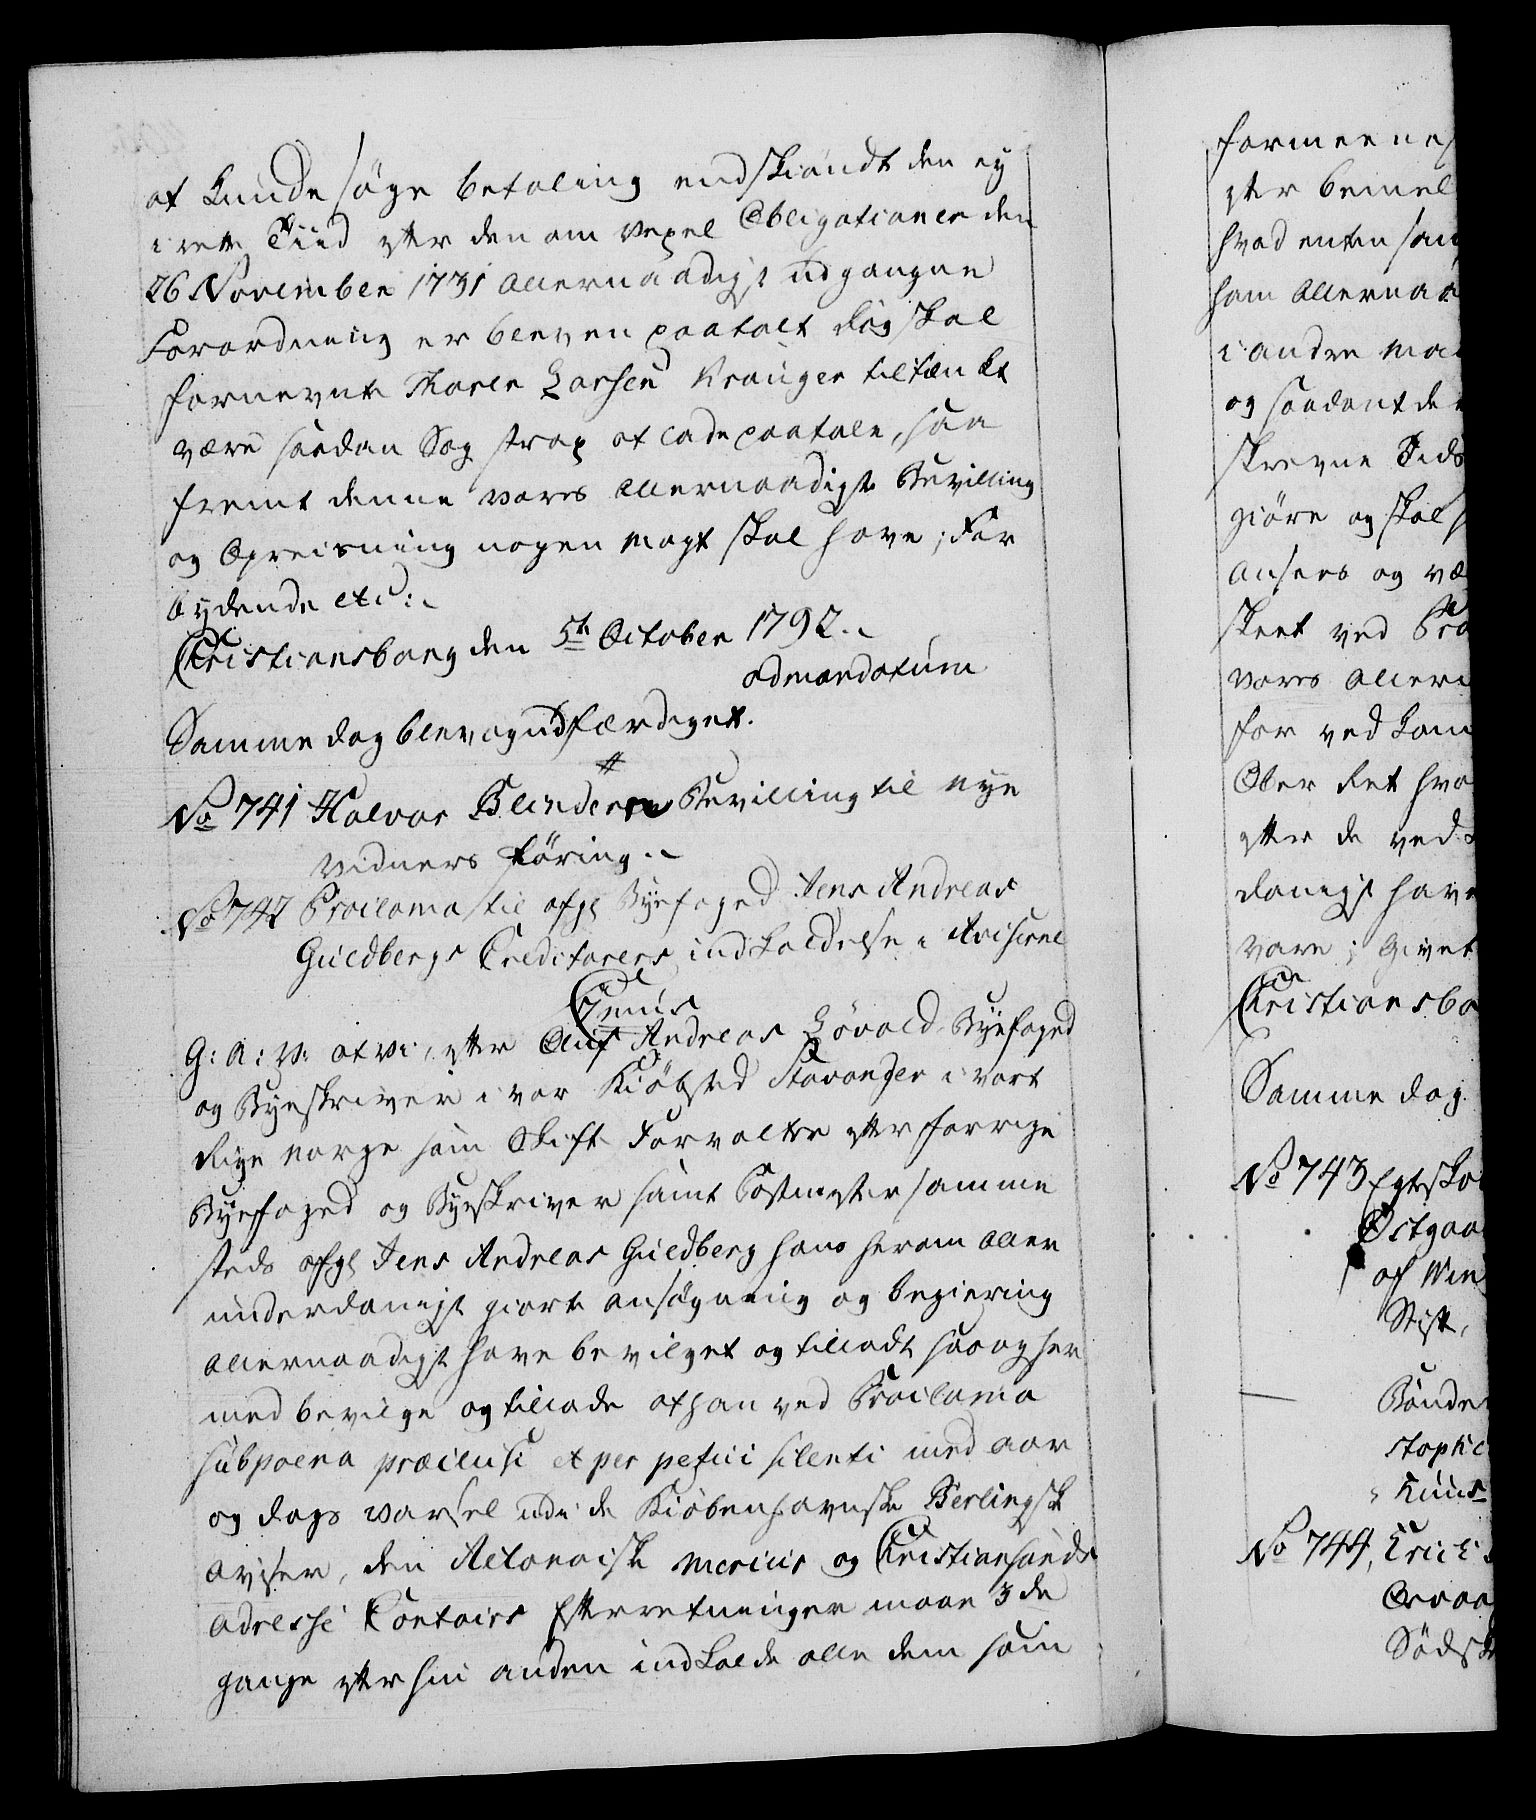 at kunde søge betaling endskiøndt den ey
i rette Tiid efter den om vexel Obligationer den
26 November 1731 allernaadigst udgangne
Forordning er bleven paatalt dog skal
fornevnte Thorer Larsen Krauger tiltænkt
være saadan Sag strax at lade paatale, saa
fremt denne vores allernaadigste Bevilling
og Opreisning nogen magt skal have; For
bydende etc:
Christiansborg den 5te October 1792.
ad mandatum
Samme dag blev og udfærdiget.
No 741 Halvor Blindern Bevilling til nye
vidners føring.
No 742 Proclama til afgl Byefoged Jens Andreas
Guldbergs Creditorers indkaldelse i Aviserne
Genus
G: A: V: at vi, efter Oluf Andreas Løvold Byefoged
og Byeskriver i vor Kiøbsted Stavanger i vort
Rige Norge som Skifte Forvalter efter forrige
Byefoged og Byeskriver samt Postmester samme
steds afgl Jens Andreas Guldberg hans herom aller
underdanigst giorte ansøgning og begiering
allernaadigst have bevilget og tilladt saa og her
med bevilge og tillade at han ved Proclama
sub poena præclusi et perpetui silenti med aar
og dags varsel udi de Kiøbenhavnske Berlingske
aviser, den Altonaiske mercur og Christiansands
adresse Contoirs Efterretninger maae 3de
gange efter hin anden indkalde alle dem som
formeenes
efter bemel
hvad enten saa
ham allernaa
i andre maa
og saadant de
skrevne Tids
giøre og skal
ansees og væ
skeet ved Pro
vores allern
for ved kom
Ober Ret hvo
efter de ved
danigst have
vare; Givet
Christiansbo
Samme dag
No 743 Egteska
Østgaa
af Vin
Stift,
Bonde
stophe
Knus
No 744, Erich
Orvaa
Sødsk